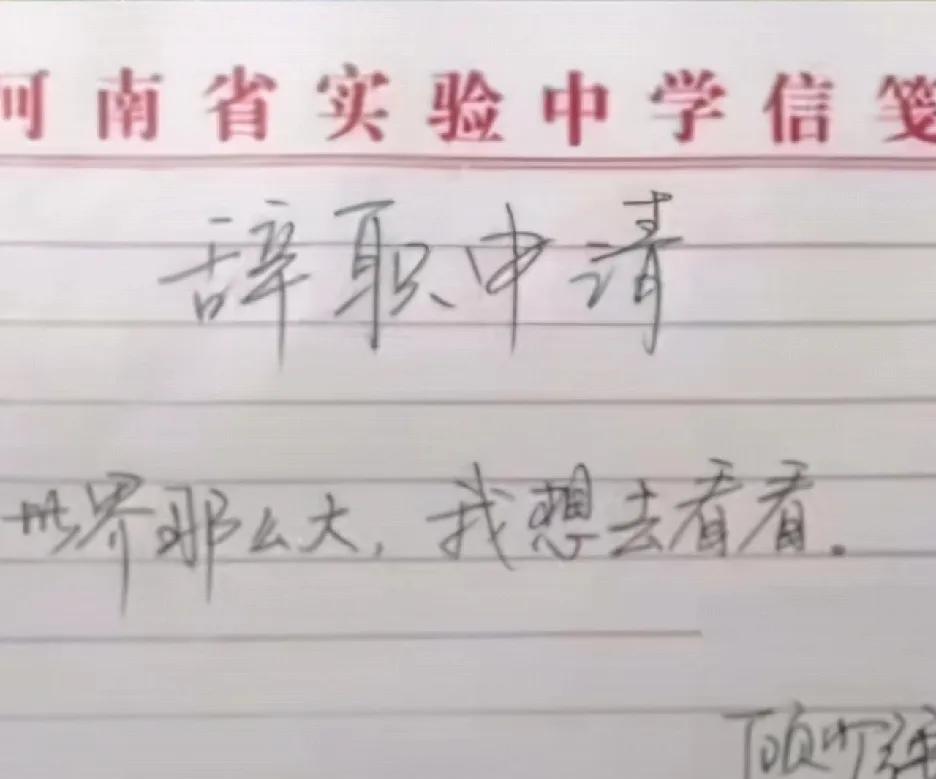 河南省实验中学信笺
辞职申请
世界那么大，我想去看看.
顾